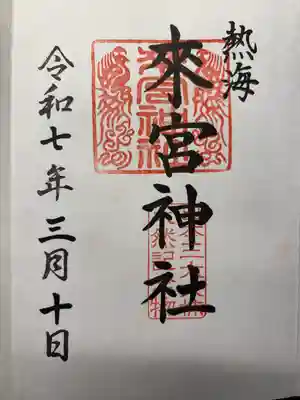 熱海
來宮神社
令和七年三月十日